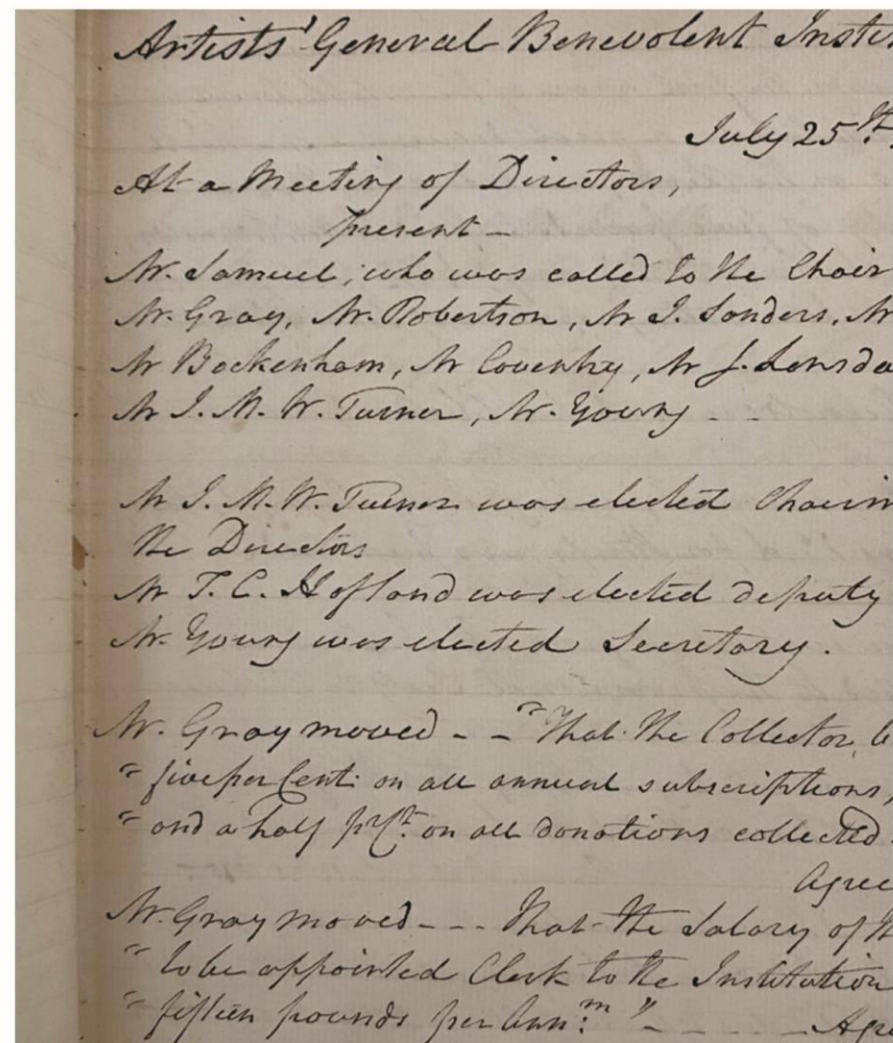 Artists' General Benevolent Insti
July 25th.
At a Meeting of Directors,
present –
Mr. Samuel, who was called to the Chair
Mr. Gray, Mr. Robertson, Mr J. Sanders, Mr
Mr Bockenham, Mr Coventry, Mr J. Lonsda
Mr J. M. W. Turner, Mr. Young - -
Mr J. M. W. Turner was elected Chairm
the Directors
Mr T. C. Hofland was elected deputy
Mr. Young was elected Secretary.
Mr. Gray moved - - "That the Collector, b
" five per Cent: on all annual subscriptions,
" and a half pr Ct. on all donations collected
Agree
Mr. Gray moved - - - That the Salary of th
" to be appointed Clerk to the Institution
" fifteen pounds per Ann:m " - - - - - Agre